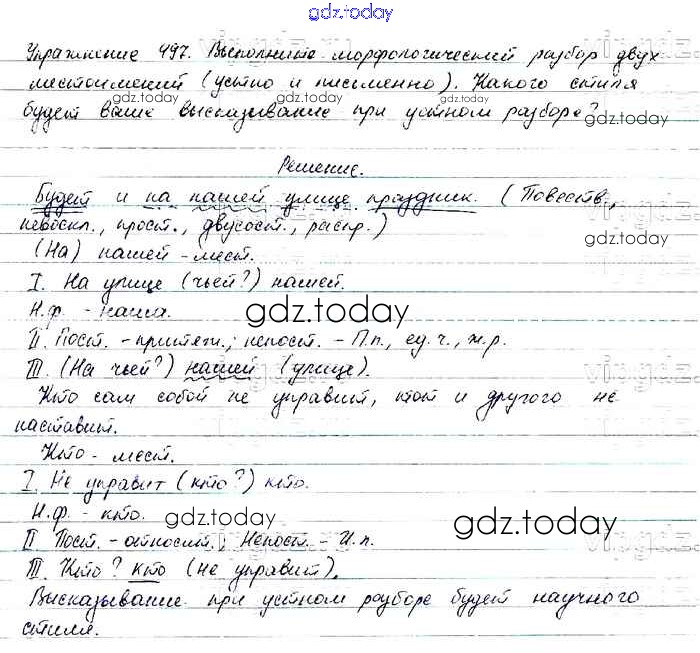 gdz.today
Упражнение 497. Выполните морфологический разбор двух
местоимений (устно и письменно). Какого стиля
gdz.today gdz.today
будет ваше высказывание при устном разборе?
gdz.today
Решение.
Будет и на нашей улице праздник. (Повеств.,
невоскл., прост., двусост., распр.)
gdz.today
(На) нашей - мест.
I. На улице (чьей?) нашей.
Н.ф. - наша. gdz.today
II. Пост. - притяж.; непост. - П.п., ед.ч., ж.р.
III. (На чьей?) нашей (улице).
Кто сам собой не управит, тот и другого не
наставит.
Кто - мест.
I. Не управит (кто?) кто.
Н.ф. - кто. gdz.today gdz.today
II Пост. - относит.; Непост. - И.п.
III. Кто? кто (не управит).
Высказывание при устном разборе будет научного
стиля.